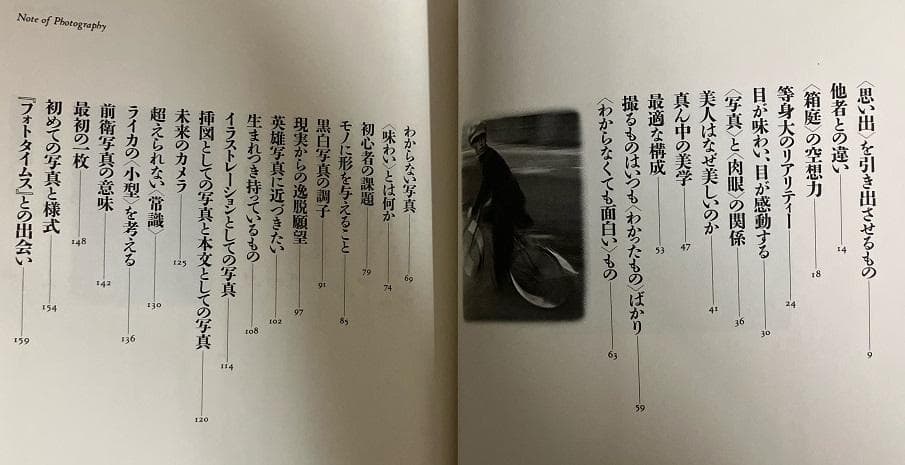 〈思い出〉を引き出させるもの 9
他者との違い 14
〈箱庭〉の空想力 18
等身大のリアリティー 24
目が味わい、目が感動する 30
〈写真〉と〈肉眼〉の関係 36
美人はなぜ美しいのか 41
真ん中の美学 47
最適な構成 53
撮るものはいつも〈わかったもの〉ばかり 59
〈わからなくても面白い〉もの 63
Note of Photography
わからない写真 69
〈味わい〉とは何か 74
初心者の課題 79
モノに形を与えること 85
黒白写真の調子 91
現実からの逸脱願望 97
英雄写真に近づきたい 102
生まれつき持っているもの 108
イラストレーションとしての写真 114
挿図としての写真と本文としての写真 120
未来のカメラ 125
超えられない〈常識〉 130
ライカの〈小型〉を考える 136
前衛写真の意味 142
最初の一枚 148
初めての写真と様式 154
『フォトタイムス』との出会い 159